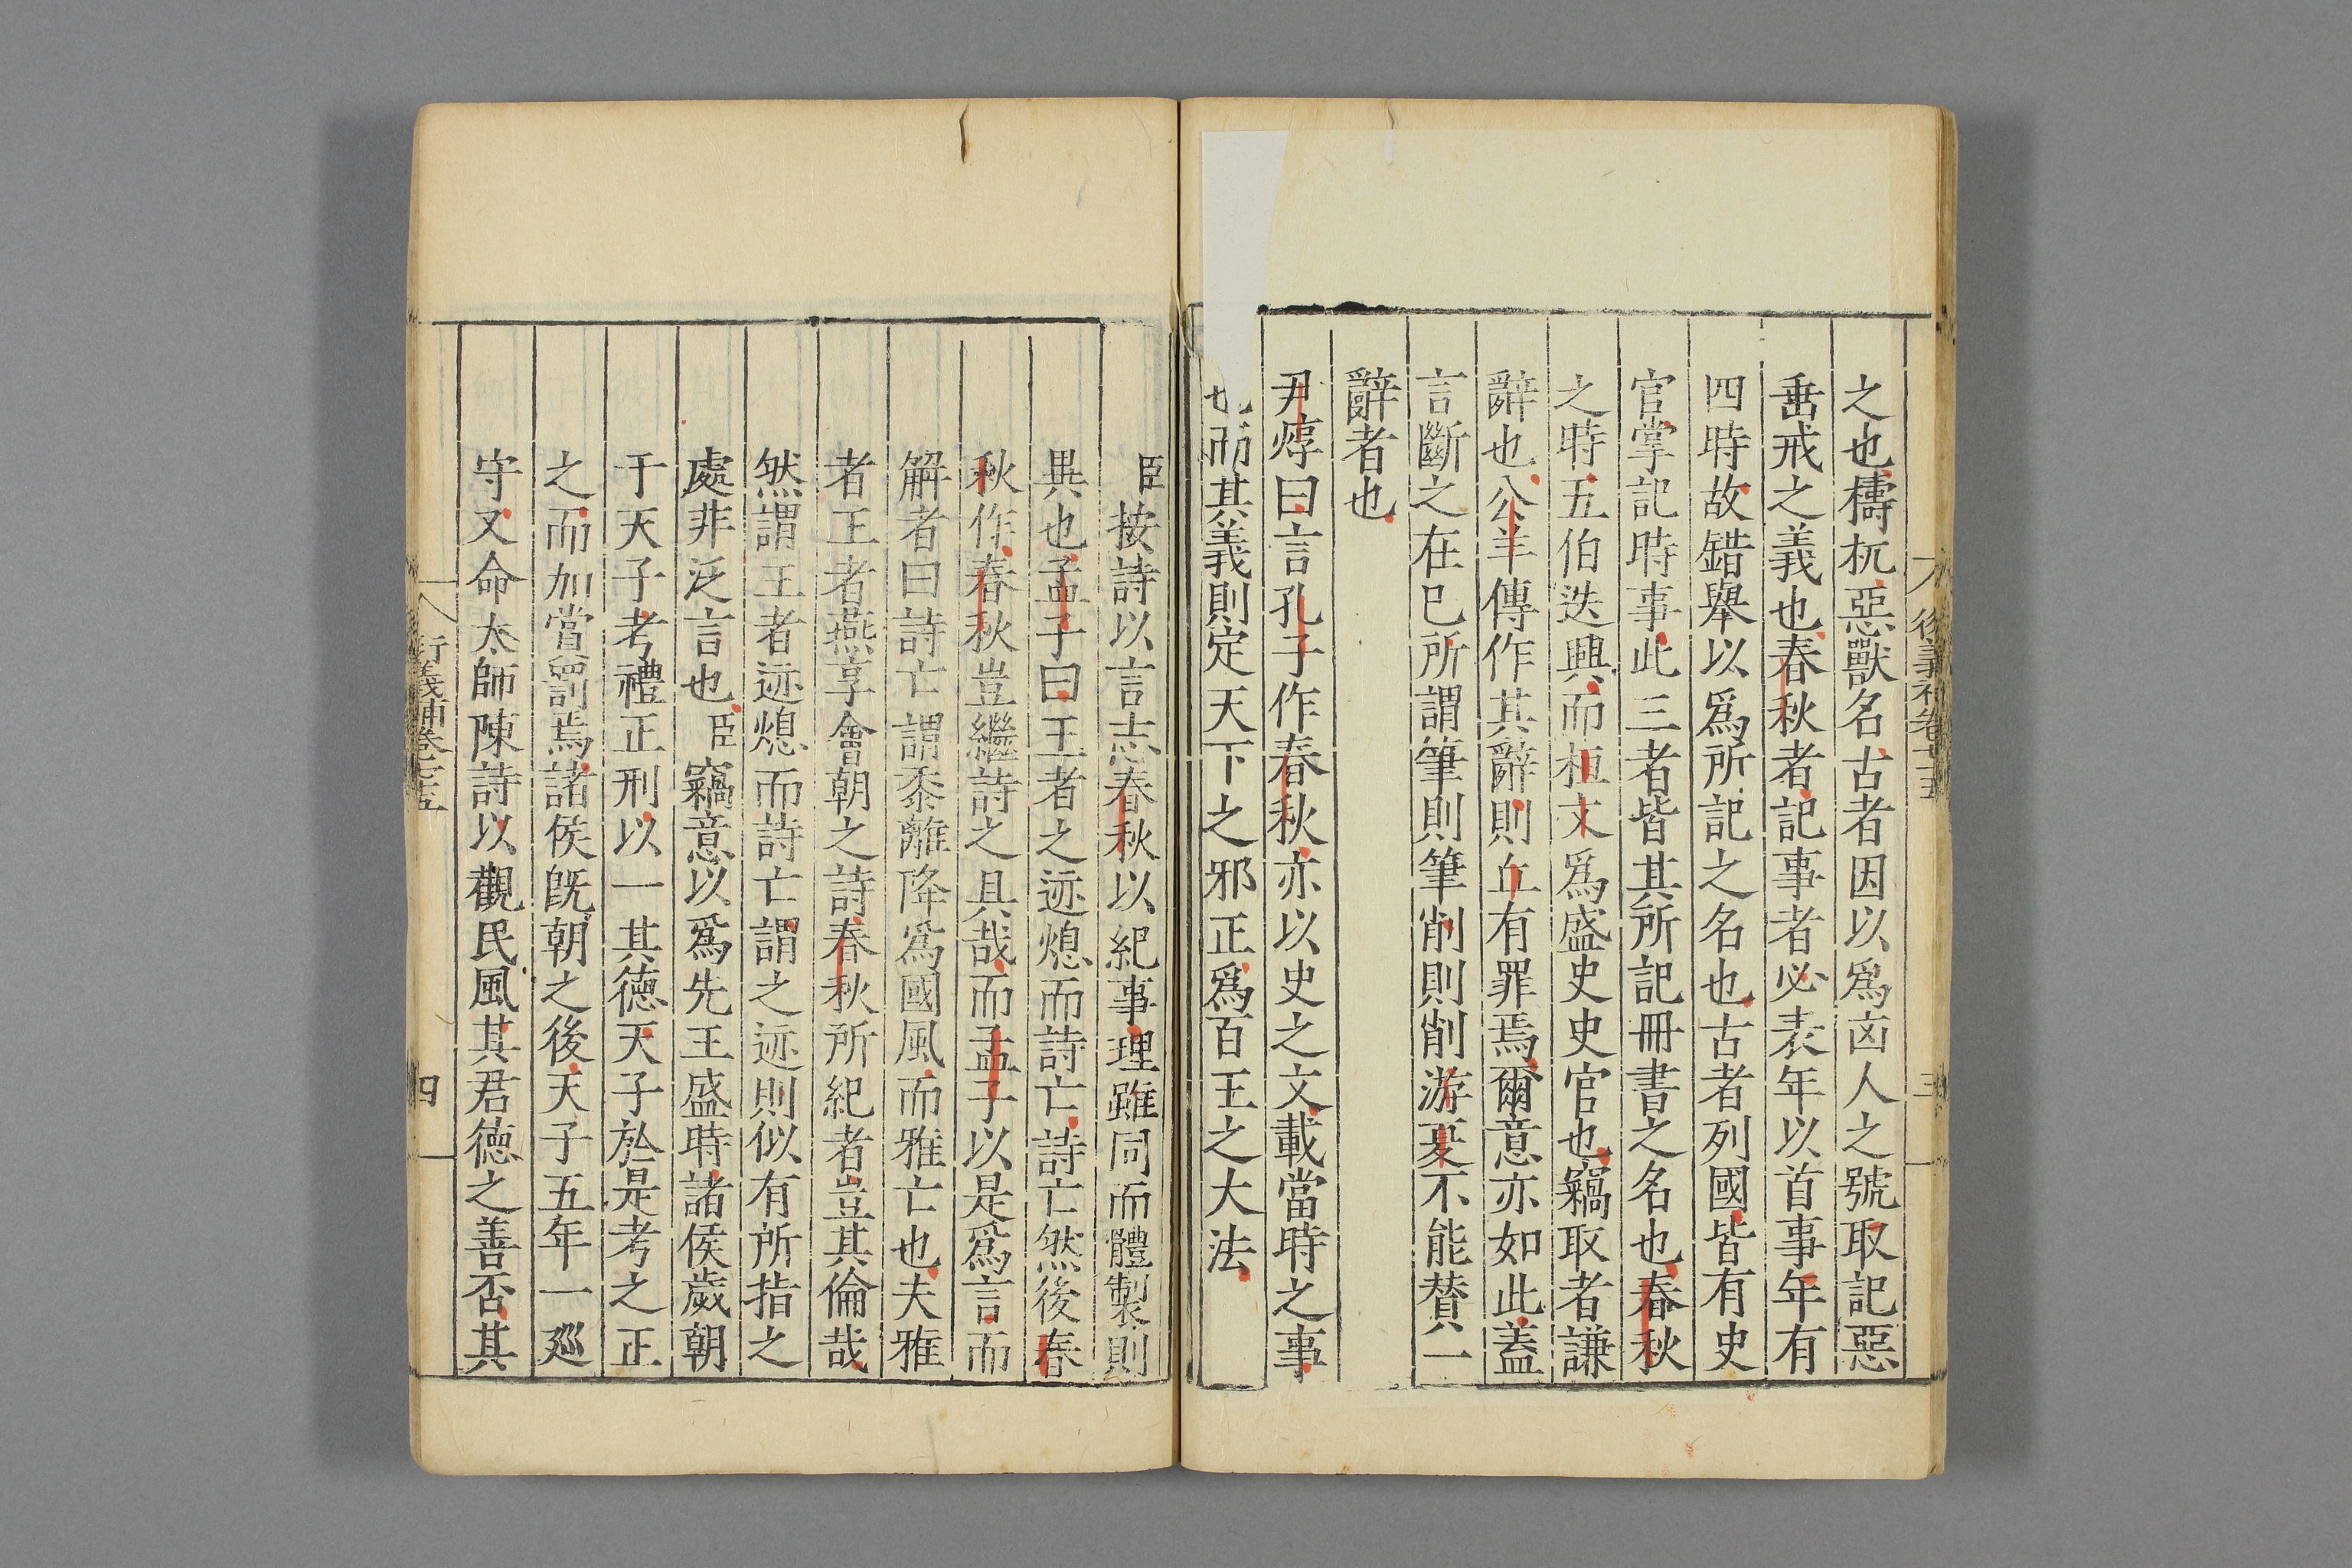 之也檮杌惡獸名古者因以爲凶人之號取記惡
垂戒之義也春秋者記事者必表年以首事年有
四時故錯舉以爲所記之名也古者列國皆有史
官掌記時事此三者皆其所記冊書之名也春秋
之時五伯迭興而桓文爲盛史史官也竊取者謙
辭也公羊傳作其辭則丘有罪焉爾意亦如此蓋
言斷之在已所謂筆則筆削則削游夏不能賛一
辭者也
尹焞曰言孔子作春秋亦以史之文載當時之事
也而其義則定天下之邪正爲百王之大法
臣按詩以言志春秋以紀事理雖同而體製則
異也孟子曰王者之迹熄而詩亡詩亡然後春
秋作春秋豈繼詩之具哉而孟子以是爲言而
解者曰詩亡謂黍離降爲國風而雅亡也夫雅
者王者燕享會朝之詩春秋所紀者豈其倫哉
然謂王者迹熄而詩亡謂之迹則似有所指之
處非泛言也臣竊意以爲先王盛時諸侯歲朝
于天子考禮正刑以一其德天子於是考之正
之而加賞罰焉諸侯旣朝之後天子五年一廵
守又命太師陳詩以觀民風其君德之善否其
衍義補卷七十五
四